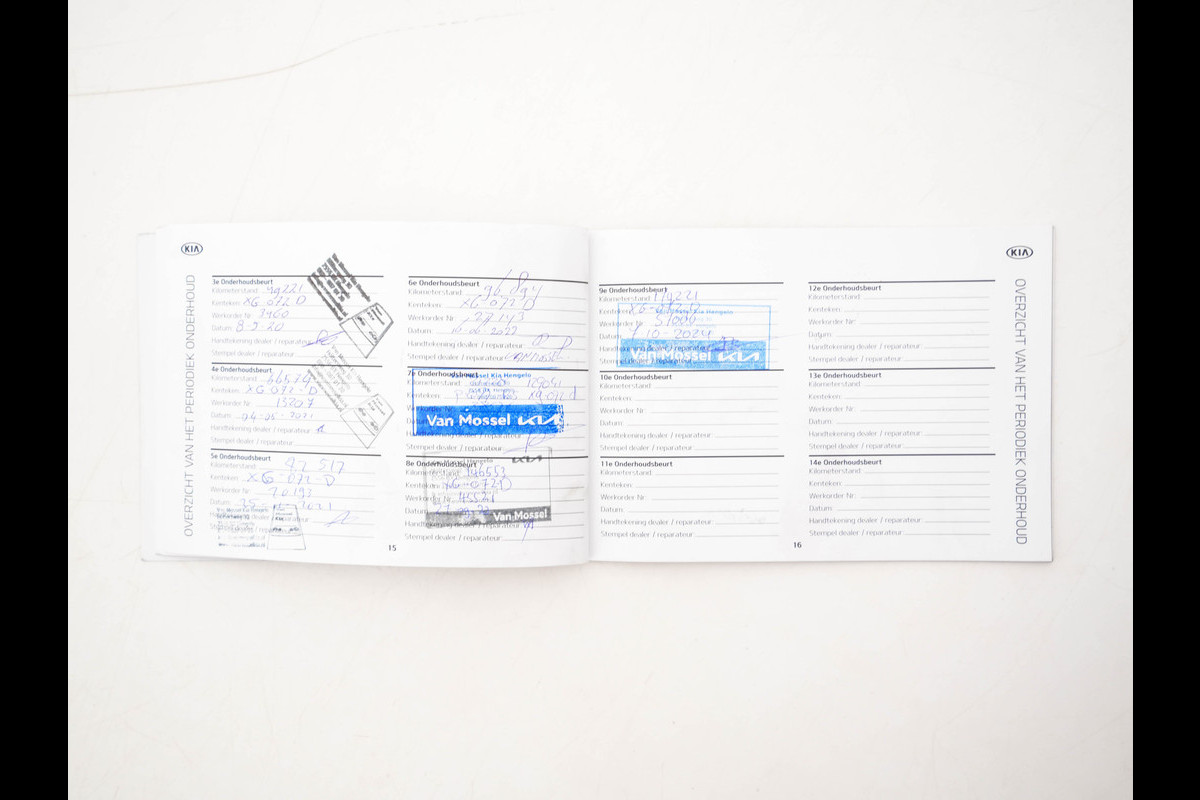 KIA
OVERZICHT VAN HET PERIODIEK ONDERHOUD
3e Onderhoudsbeurt
Kilometerstand:
Kenteken: XG 072 D
Werkorder Nr: 3460
Datum: 8-5 20
Handtekening dealer / reparateur:
Stempel dealer / reparateur:
4e Onderhoudsbeurt
Kilometerstand: 66574
Kenteken: XG 072-D
Werkorder Nr: 13207
Datum: 04-05-2021
Handtekening dealer / reparateur:
Stempel dealer / reparateur:
5e Onderhoudsbeurt
Kilometerstand: 82 517
Kenteken: XG-072-D
Werkorder Nr:
Datum:
6e Onderhoudsbeurt
Kilometerstand:
Kenteken: XG-072 D
Werkorder Nr: 27143
Datum: 16-06-2022
Handtekening dealer / reparateur:
Stempel dealer / reparateur: VAN MOSSEL
7e Onderhoudsbeurt
Van Mossel Kia Hengelo
Kilometerstand:
Van Mossel KIA
Stempel dealer / reparateur:
8e Onderhoudsbeurt
Kilometerstand: 146553
Kenteken:
Werkorder Nr: 45521
Datum:
Van Mossel
Handtekening dealer / reparateur:
Stempel dealer / reparateur:
15
KIA
OVERZICHT VAN HET PERIODIEK ONDERHOUD
9e Onderhoudsbeurt
Kilometerstand:
Kenteken: XG-072-D
Werkorder Nr: 51000
Datum: 4 10-2024
Van Mossel KIA
10e Onderhoudsbeurt
Kilometerstand:
Kenteken:
Werkorder Nr:
Datum:
Handtekening dealer / reparateur:
Stempel dealer / reparateur:
11e Onderhoudsbeurt
Kilometerstand:
Kenteken:
Werkorder Nr:
Datum:
Handtekening dealer / reparateur:
Stempel dealer / reparateur:
12e Onderhoudsbeurt
Kilometerstand:
Kenteken:
Werkorder Nr:
Datum:
Handtekening dealer / reparateur:
Stempel dealer / reparateur:
13e Onderhoudsbeurt
Kilometerstand:
Kenteken:
Werkorder Nr:
Datum:
Handtekening dealer / reparateur:
Stempel dealer / reparateur:
14e Onderhoudsbeurt
Kilometerstand:
Kenteken:
Werkorder Nr:
Datum:
Handtekening dealer / reparateur:
Stempel dealer / reparateur:
16